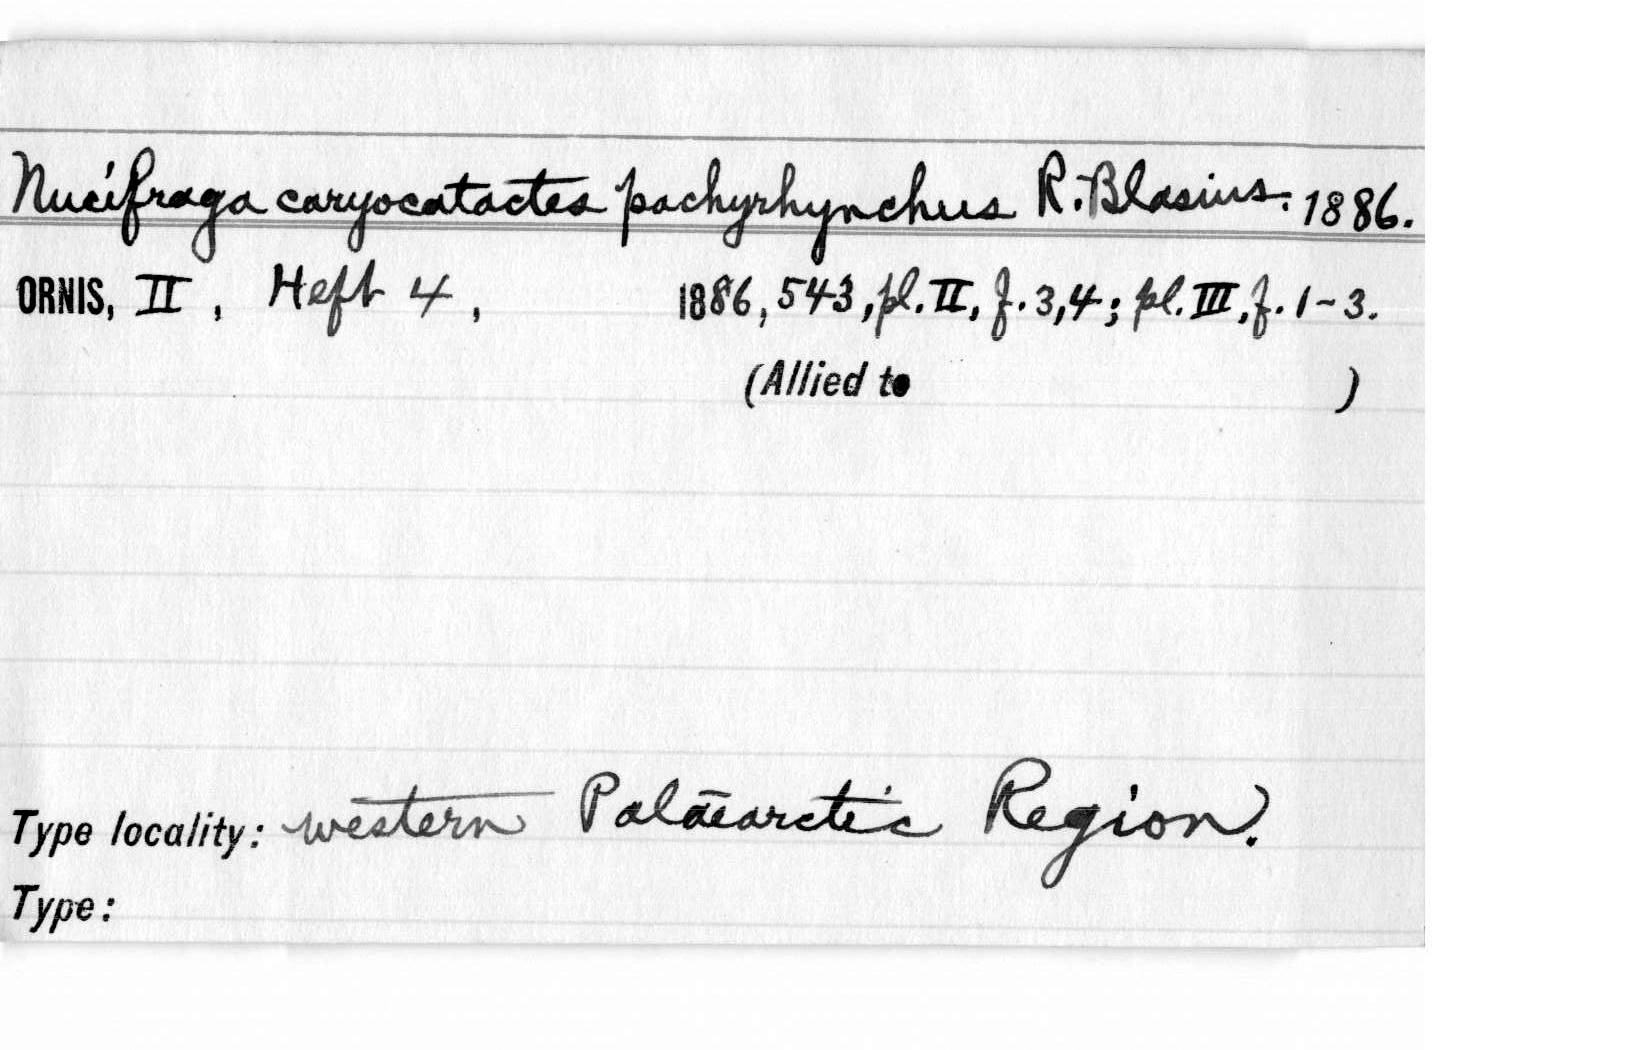 Nucifraga caryocatactes pachyrhynchus R. Blasius. 1886.
ORNIS, II, Heft 4, 1886, 543, pl. II, f. 3,4; pl. III, f. 1-3.
(Allied to )
Type locality: western Palaearctic Region.
Type: